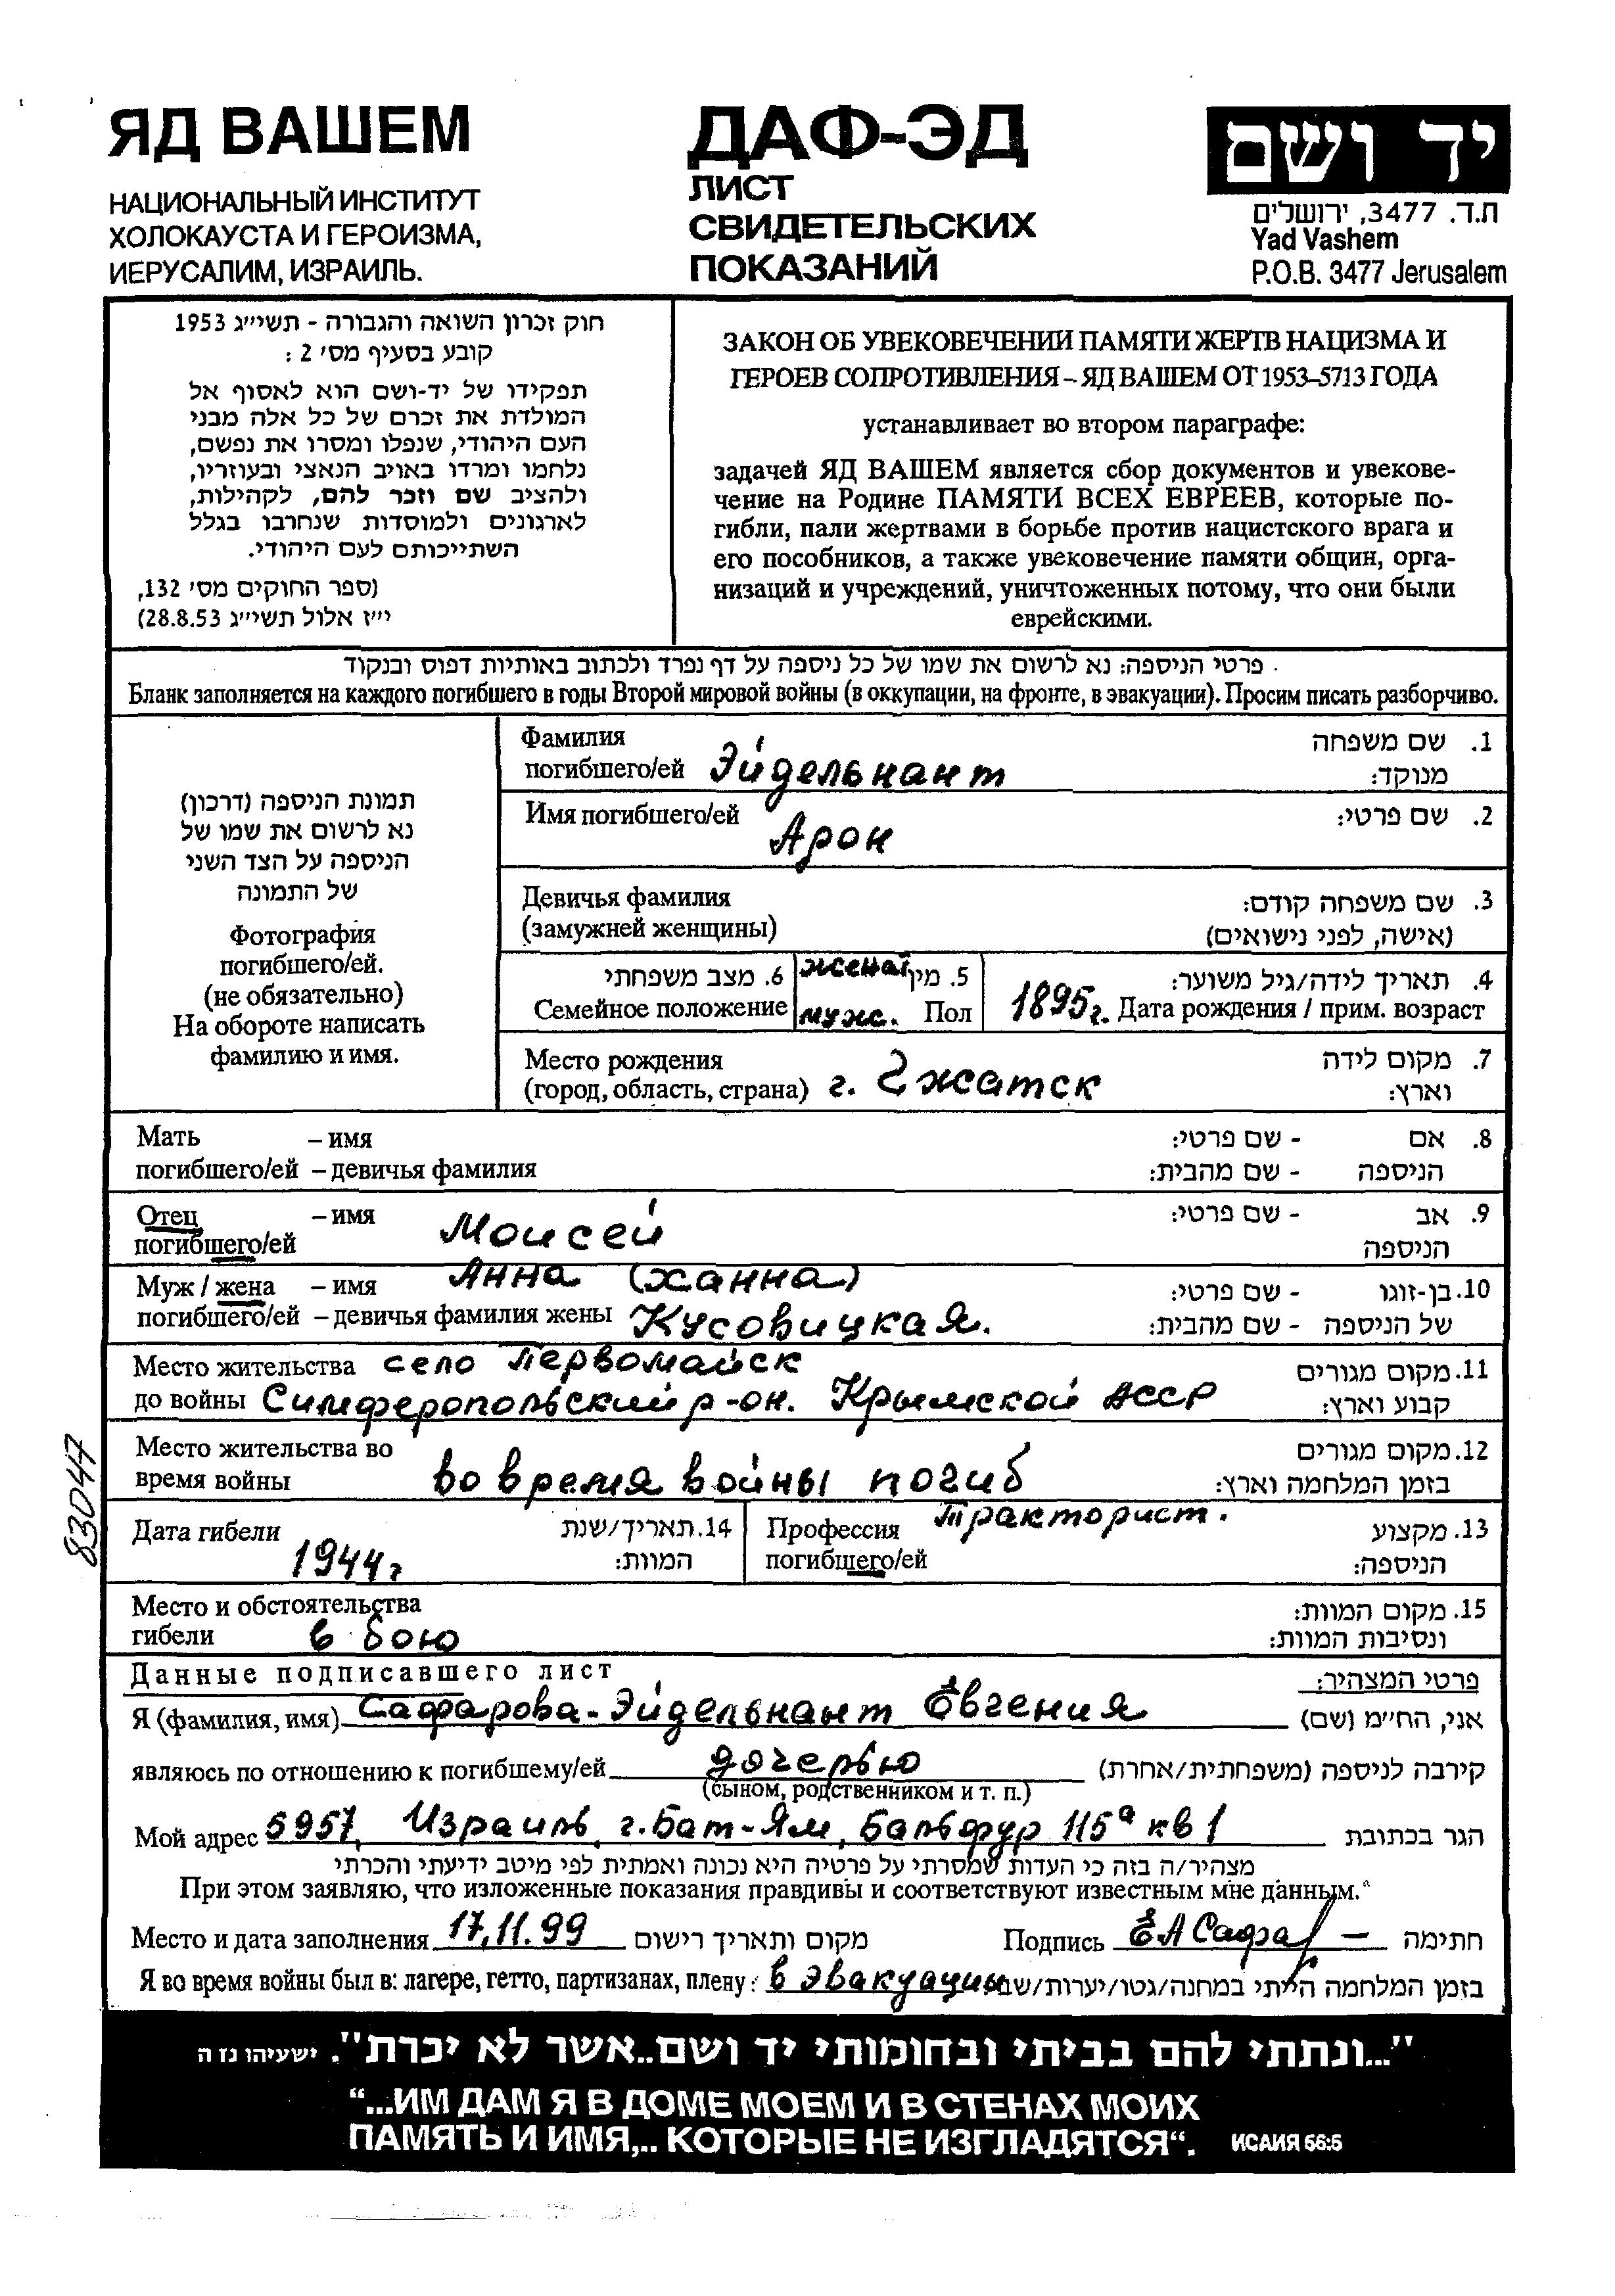 ЯД ВАШЕМ
НАЦИОНАЛЬНЫЙ ИНСТИТУТ
ХОЛОКАУСТА И ГЕРОИЗМА,
ИЕРУСАЛИМ, ИЗРАИЛЬ.
ДАФ-ЭД
ЛИСТ
СВИДЕТЕЛЬСКИХ
ПОКАЗАНИЙ
יד ושם
ת.ד. 3477, ירושלים
Yad Vashem
P.O.B. 3477 Jerusalem
חוק זכרון השואה והגבורה - תשי״ג 1953
קובע בסעיף מס׳ 2 :
תפקידו של יד-ושם הוא לאסוף אל
המולדת את זכרם של כל אלה מבני
העם היהודי, שנפלו ומסרו את נפשם,
נלחמו ומרדו באויב הנאצי ובעוזריו,
ולהציב שם וזכר להם, לקהילות,
לארגונים ולמוסדות שנחרבו בגלל
השתייכותם לעם היהודי.
(ספר החוקים מס׳ 132,
י״ז אלול תשי״ג 28.8.53)
ЗАКОН ОБ УВЕКОВЕЧЕНИИ ПАМЯТИ ЖЕРТВ НАЦИЗМА И
ГЕРОЕВ СОПРОТИВЛЕНИЯ – ЯД ВАШЕМ ОТ 1953–5713 ГОДА
устанавливает во втором параграфе:
задачей ЯД ВАШЕМ является сбор документов и увекове-
чение на Родине ПАМЯТИ ВСЕХ ЕВРЕЕВ, которые по-
гибли, пали жертвами в борьбе против нацистского врага и
его пособников, а также увековечение памяти общин, орга-
низаций и учреждений, уничтоженных потому, что они были
еврейскими.
פרטי הניספה: נא לרשום את שמו של כל ניספה על דף נפרד ולכתוב באותיות דפוס ובנקוד
Бланк заполняется на каждого погибшего в годы Второй мировой войны (в оккупации, на фронте, в эвакуации). Просим писать разборчиво.
תמונת הניספה (דרכון)
נא לרשום את שמו של
הניספה על הצד השני
של התמונה
Фотография
погибшего/ей.
(не обязательно)
На обороте написать
фамилию и имя.
Фамилия 1. שם משפחה
погибшего/ей Эйдельнант מנוקד:
Имя погибшего/ей Арон 2. שם פרטי:
Девичья фамилия 3. שם משפחה קודם:
(замужней женщины) (אישה, לפני נישואים)
6. מצב משפחתי женат 5. מין 4. תאריך לידה/גיל משוער:
Семейное положение муж. Пол 1895г. Дата рождения / прим. возраст
Место рождения 7. מקום לידה
(город, область, страна) г. Гжатск וארץ:
Мать – имя 8. אם - שם פרטי:
погибшего/ей – девичья фамилия הניספה - שם מהבית:
Отец – имя Моисей 9. אב - שם פרטי:
погибшего/ей הניספה
Муж / жена – имя Анна (Ханна) 10. בן-זוגו - שם פרטי:
погибшего/ей – девичья фамилия жены Кусовицкая. של הניספה - שם מהבית:
Место жительства село Первомайск 11. מקום מגורים
до войны Симферопольский р-он. Крымской АССР קבוע וארץ:
Место жительства во 12. מקום מגורים
время войны во время войны погиб בזמן המלחמה וארץ:
83047
Дата гибели 1944г 14. תאריך/שנת
המוות:
Профессия Тракторист. 13. מקצוע
погибшего/ей הניספה:
Место и обстоятельства 15. מקום המוות:
гибели в бою ונסיבות המוות:
Данные подписавшего лист פרטי המצהיר:
Я (фамилия, имя) Сафарова-Эйдельнант Евгения אני, החי״מ (שם)
являюсь по отношению к погибшему/ей дочерью קירבה לניספה (משפחתית/אחרת)
(сыном, родственником и т. п.)
Мой адрес 5957, Израиль, г. Бат-Ям, Бальфур 115а кв 1 הגר בכתובת
מצהיר/ה בזה כי העדות שמסרתי על פרטיה היא נכונה ואמתית לפי מיטב ידיעתי והכרתי
При этом заявляю, что изложенные показания правдивы и соответствуют известным мне данным.
Место и дата заполнения 17.11.99 מקום ותאריך רישום Подпись חתימה
Я во время войны был в: лагере, гетто, партизанах, плену: в эвакуации בזמן המלחמה הייתי במחנה/גטו/יערות/שבי
"...ונתתי להם בביתי ובחומותי יד ושם..אשר לא יכרת". ישעיהו נז ה
“...ИМ ДАМ Я В ДОМЕ МОЕМ И В СТЕНАХ МОИХ
ПАМЯТЬ И ИМЯ,.. КОТОРЫЕ НЕ ИЗГЛАДЯТСЯ“. ИСАИЯ 56:5